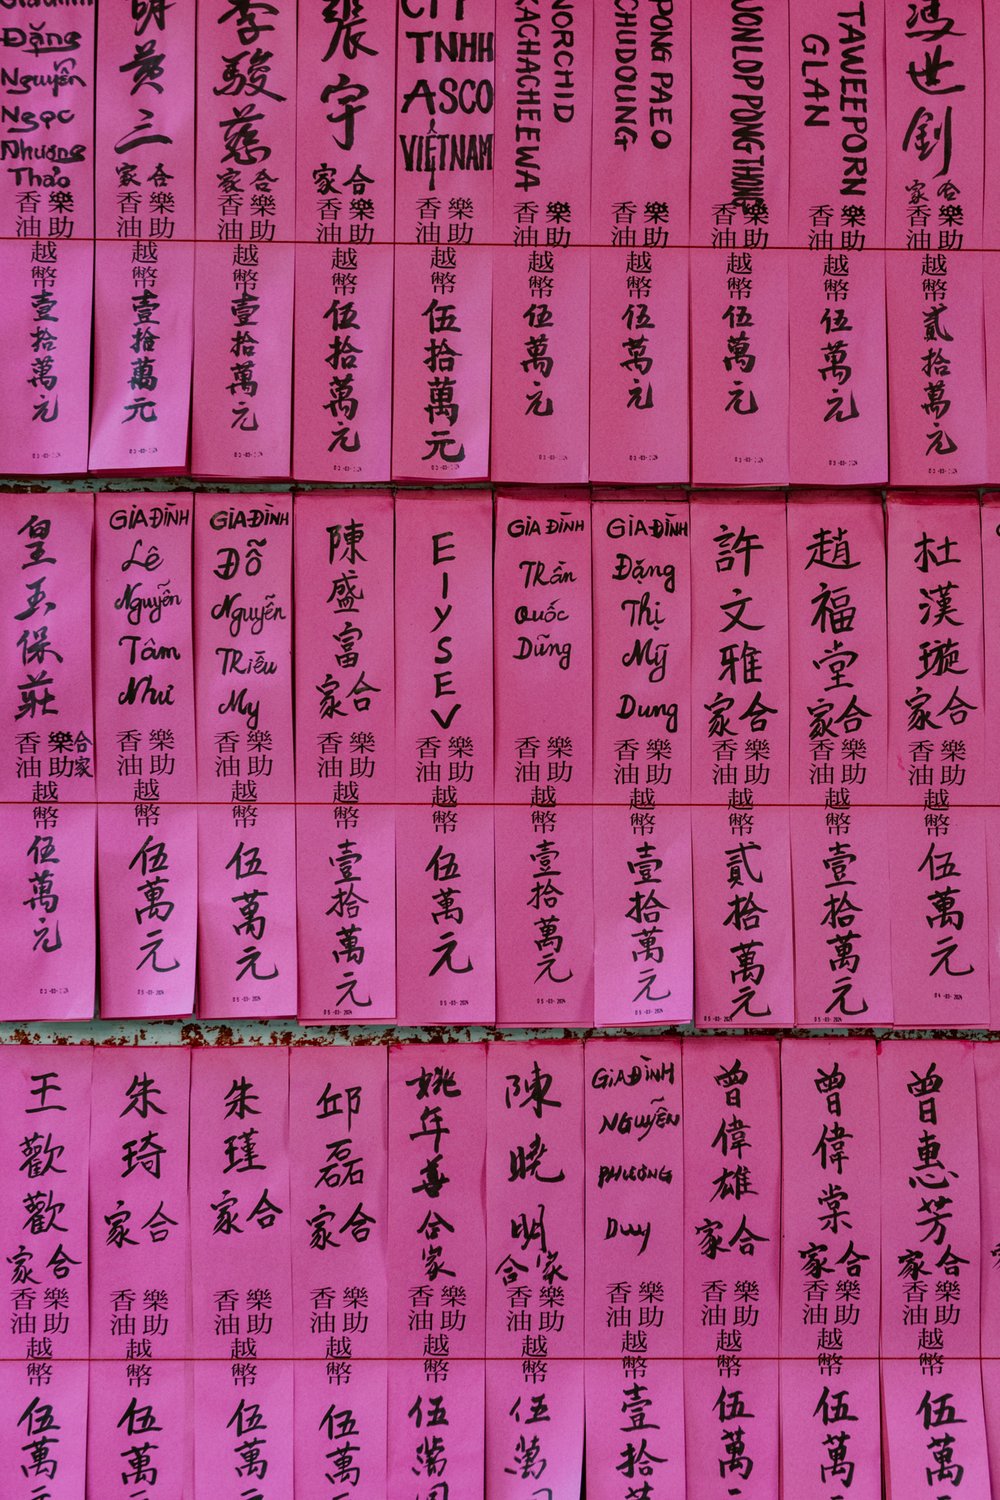 Đặng
Nguyễn
Ngọc
Phương
Thảo
樂助
香油
越幣壹拾萬元
黃三
合家
樂助
香油
越幣壹拾萬元
李駿慈
合家
樂助
香油
越幣壹拾萬元
張宇
合家
樂助
香油
越幣伍拾萬元
CTY
TNHH
ASCO
VIỆTNAM
樂助
香油
越幣伍拾萬元
NORCHID
KACHACHEEWA
樂助
香油
越幣伍萬元
PONG PAEO
CHUDOUNG
樂助
香油
越幣伍萬元
樂助
香油
越幣伍萬元
TAWEEPORN
GLAN
樂助
香油
越幣伍萬元
馮世釗
合家
樂助
香油
越幣貳拾萬元
皇玉保莊
合家
樂助
香油
越幣伍萬元
GIA ĐÌNH
Lê
Nguyễn
Tâm
Như
樂助
香油
越幣伍萬元
05-03-2024
GIA ĐÌNH
Đỗ
Nguyễn
TRiều
My
樂助
香油
越幣伍萬元
05-03-2024
陳盛富
合家
樂助
香油
越幣壹拾萬元
05-03-2024
ElySEV
樂助
香油
越幣伍萬元
05-03-2024
GIA ĐÌNH
TRần
Quốc
Dũng
樂助
香油
越幣壹拾萬元
05-03-2024
GIA ĐÌNH
Đặng
Thị
Mỹ
Dung
樂助
香油
越幣壹拾萬元
05-03-2024
許文雅
合家
樂助
香油
越幣貳拾萬元
05-03-2024
趙福堂
合家
樂助
香油
越幣壹拾萬元
05-03-2024
杜漢璇
合家
樂助
香油
越幣伍萬元
王歡歡
合家
樂助
香油
越幣伍萬元
朱琦
合家
樂助
香油
越幣伍萬
朱瑾
合家
樂助
香油
越幣伍萬元
邱磊
合家
樂助
香油
越幣伍萬
姚年善
合家
樂助
香油
越幣伍萬
陳曉明
合家
樂助
香油
越幣伍萬
GIA ĐÌNH
NGUYỄN
PHƯƠNG
Duy
樂助
香油
越幣壹拾萬
曾偉雄
合家
樂助
香油
越幣伍萬
曾偉棠
合家
樂助
香油
越幣伍萬
曾惠芳
合家
樂助
香油
越幣伍萬